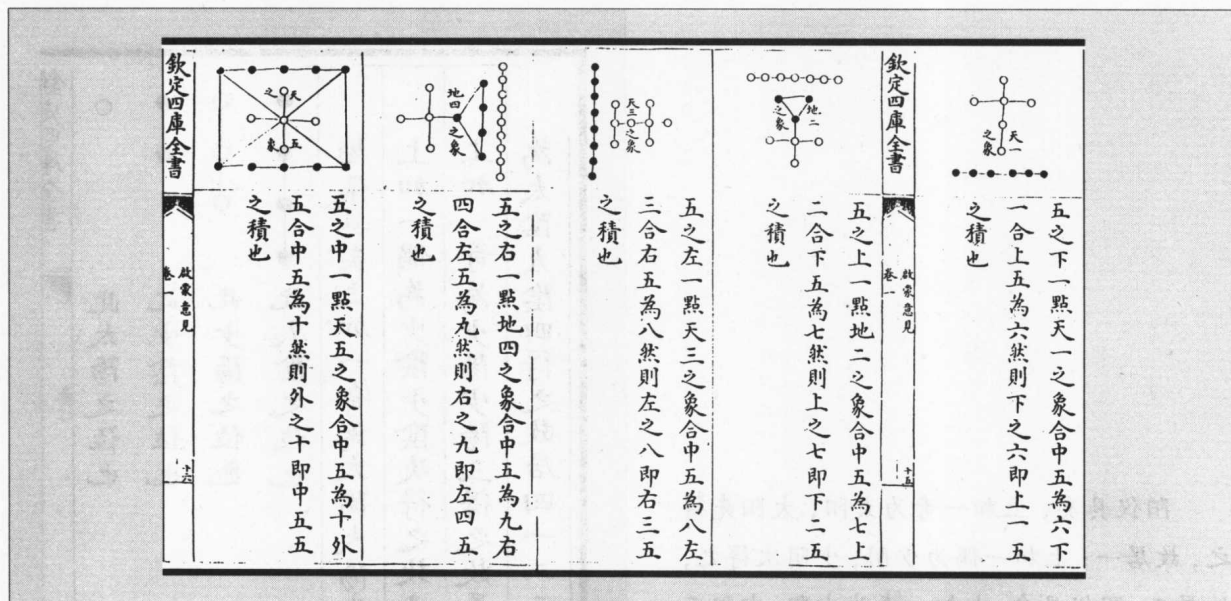 天一之象
五之下一點天一之象合中五為六下
一合上五為六然則下之六即上一五
之積也
欽定四庫全書
啟蒙意見
卷一
十五
地二之象
五之上一點地二之象合中五為七上
二合下五為七然則上之七即下二五
之積也
天三之象
五之左一點天三之象合中五為八左
三合右五為八然則左之八即右三五
之積也
地四之象
五之右一點地四之象合中五為九右
四合左五為九然則右之九即左四五
之積也
天五之象
五之中一點天五之象合中五為十外
五合中五為十然則外之十即中五五
之積也
欽定四庫全書
啟蒙意見
卷一
十六